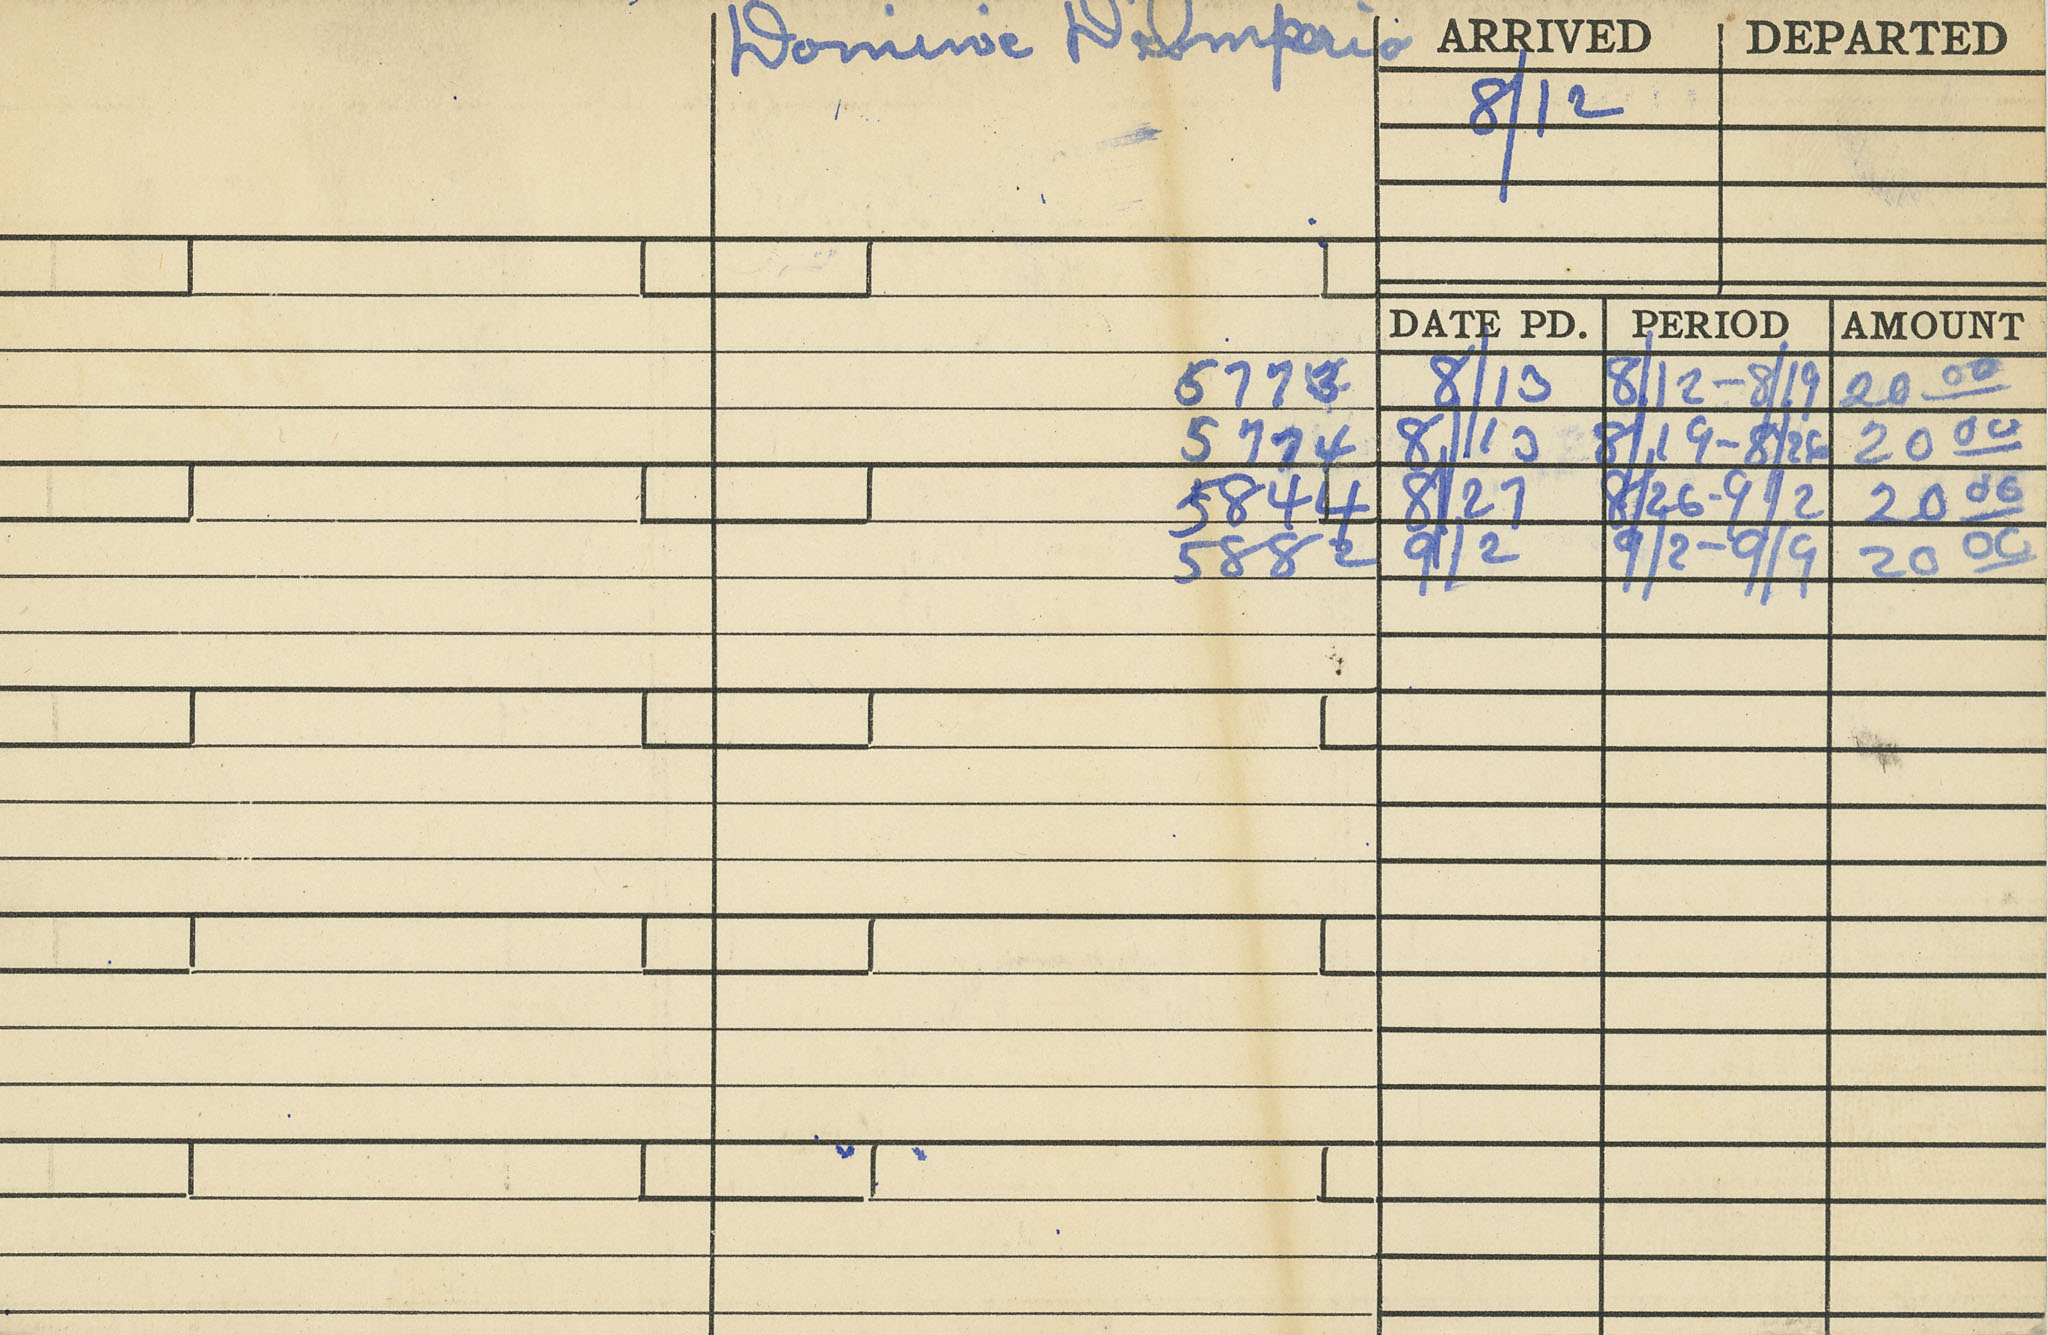 Dominic D'Imperio ARRIVED DEPARTED
8/12
DATE PD. PERIOD AMOUNT
5773 8/13 8/12-8/19 20 00
5774 8/13 8/19-8/26 20 00
5844 8/27 8/26-9/2 20 00
5882 9/2 9/2-9/9 20 00